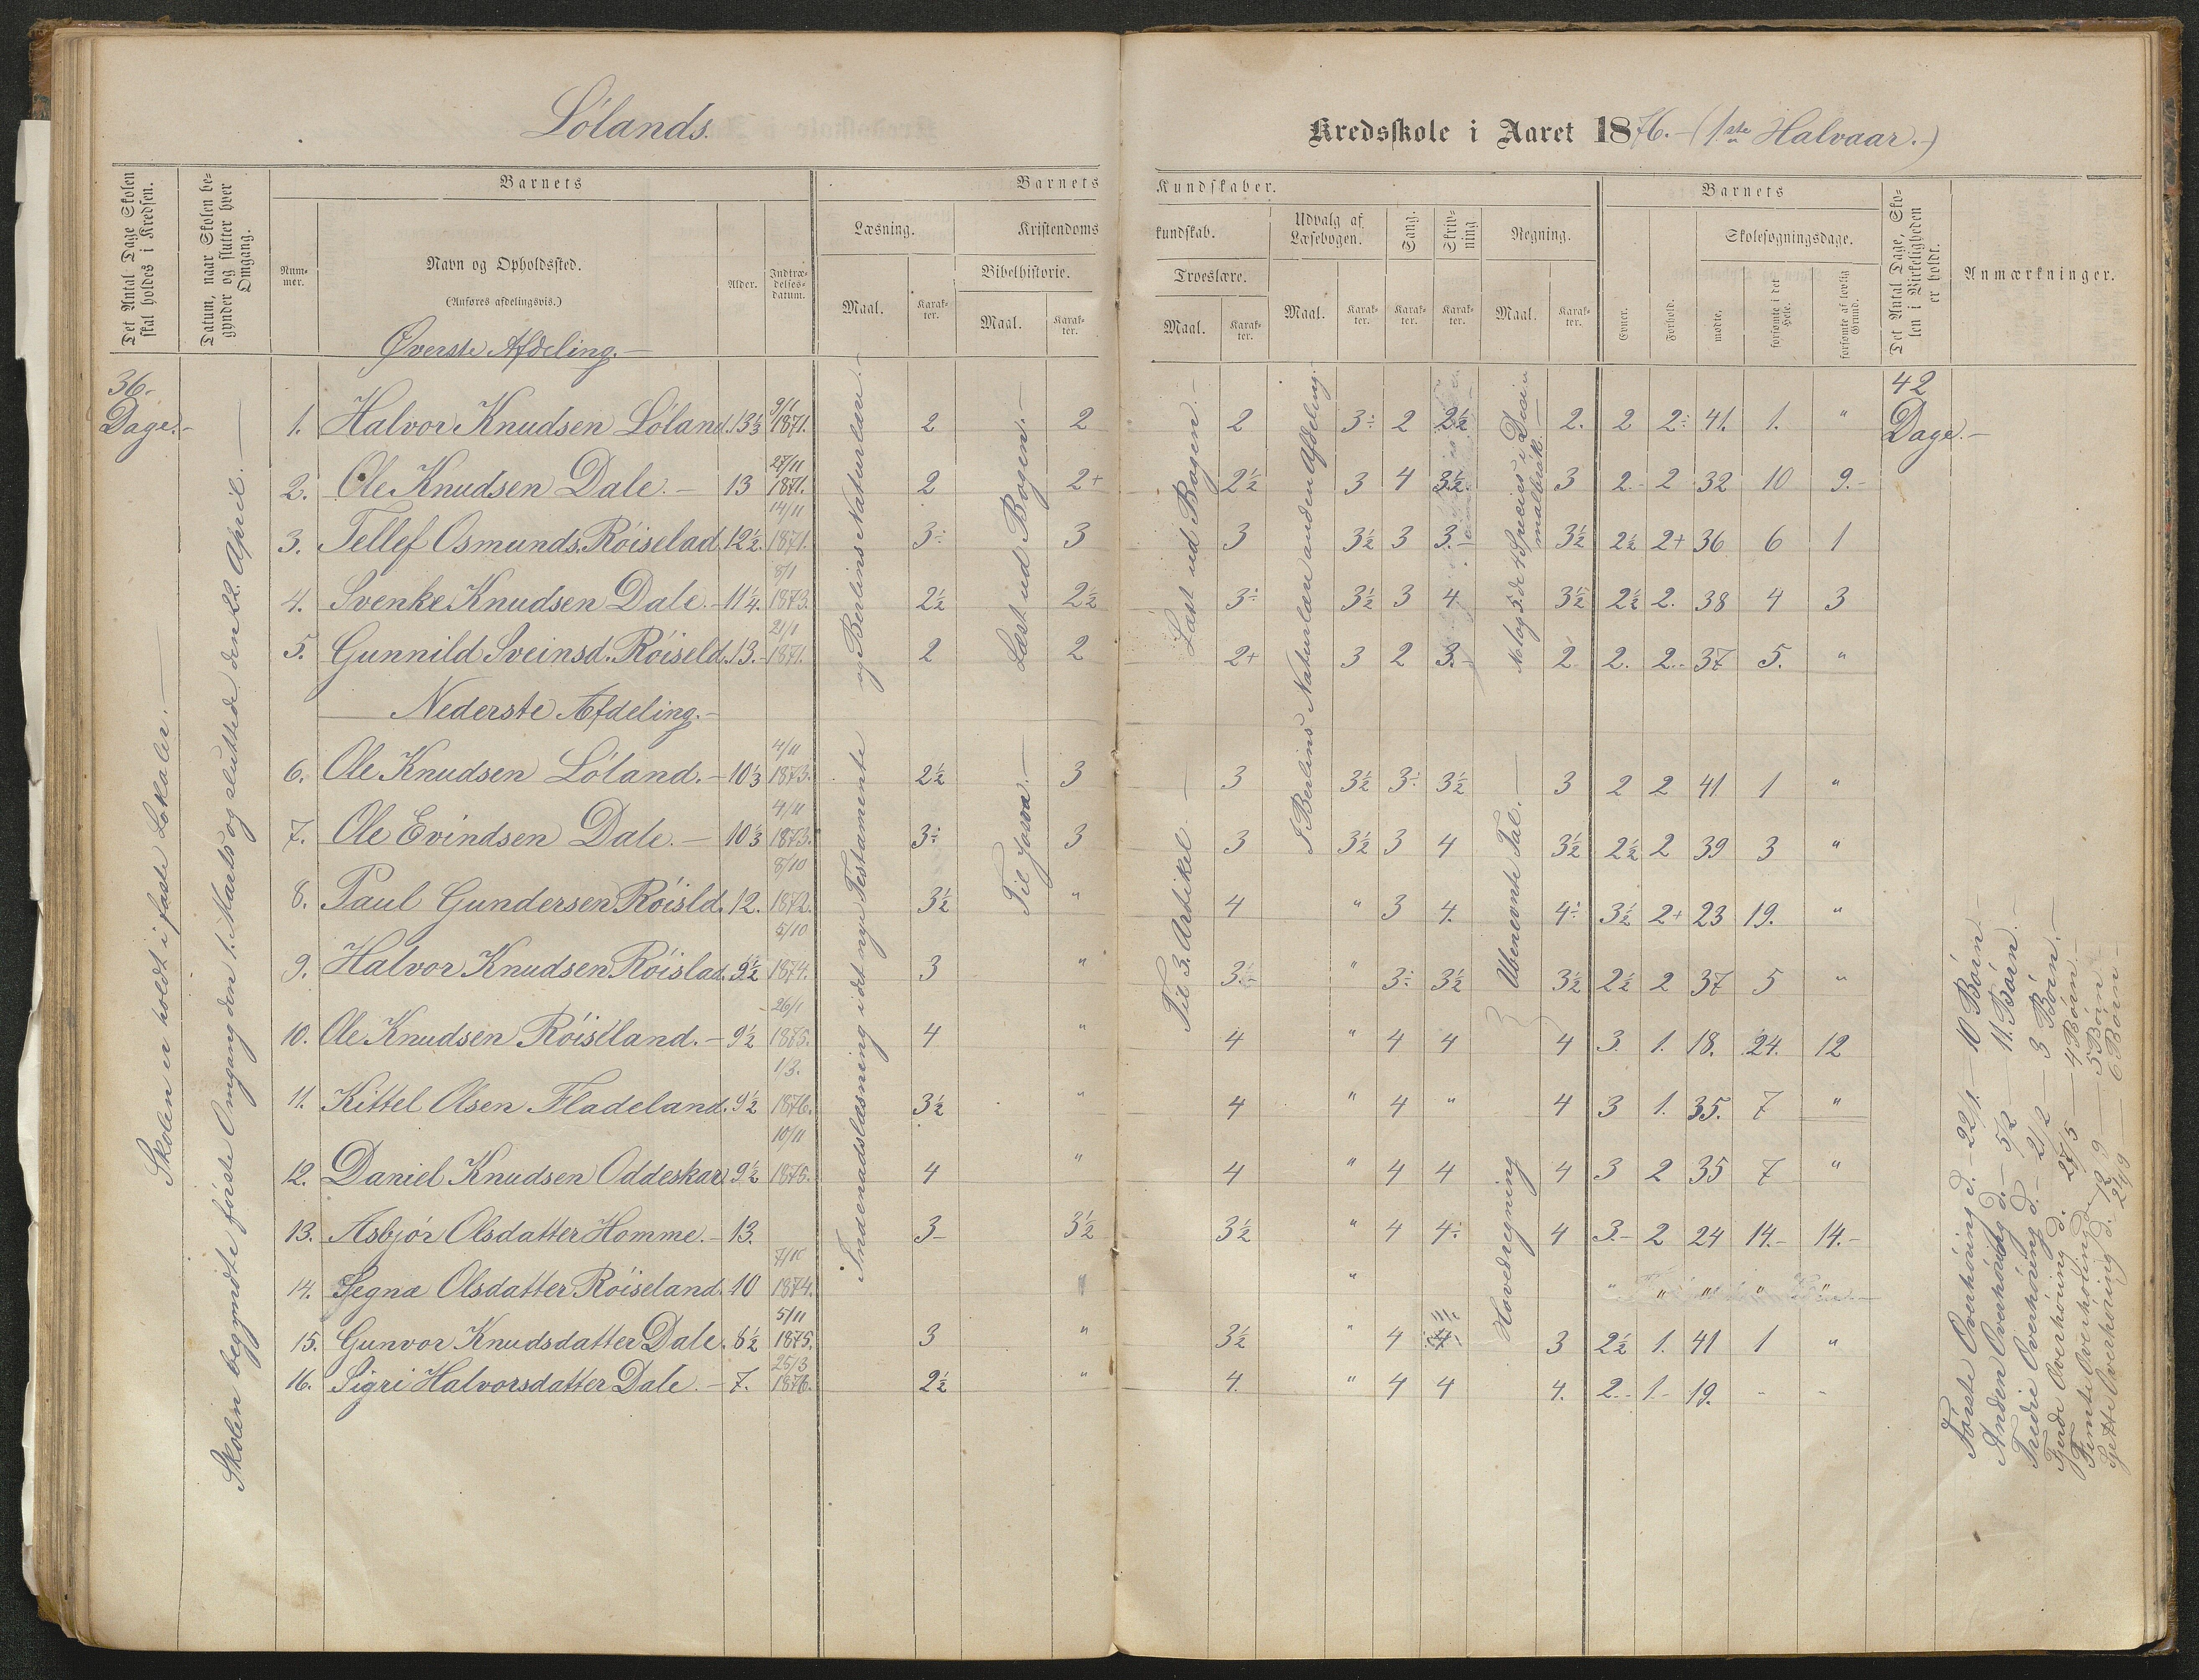 Lólands.
Kredsskole i Aaret 1876. – (1ste Halvaar.-)
Det Antal Dage Skolen skal holdes i Kredsen.
Datum, naar Skolen begynder og slutter hver Omgang.
Barnets
Nummer.
Navn og Opholdssted.
(Anføres afdelingsvis.)
Alder.
Indtrædelsesdatum.
Barnets Kundskaber.
Læsning.
Maal.
Karakter.
Kristendomskundskab.
Bibelhistorie.
Maal.
Karakter.
Troeslære.
Maal.
Karakter.
Udvalg af Læsebogen.
Maal.
Karakter.
Sang.
Karakter.
Skrivning
Karakter.
Regning.
Maal.
Karakter.
Barnets
Evner.
Forhold.
Skolesøgningsdage.
mødte.
forsømte i det Hele.
forsømte af lovlig Grund.
Det Antal Dage, Skolen i Virkeligheden er holdt.
Anmærkninger.
Øverste Afdeling. –
36 – Dage. –
42 Dage. –
1. Halvor Knudsen Lóland. 13⅓ 9/1 1871. 2 2 2 3÷ 2 2½ 2. 2 2÷ 41. 1. "
2. Ole Knudsen Dale. – 13 27/11 1871. 2 2+ 2½ 3 4 3½. 3 2.- 2 32 10 9.-
3. Tellef Osmunds. Róiselad. 12½. 14/11 1871. 3÷ 3 3 3½ 3 3.- 3½ 2½ 2+ 36 6 1
4. Svenke Knudsen Dale. – 11¼. 8/1 1873. 2½ 2½ 3÷ 3½ 3 4 3½ 2½ 2. 38 4 3
5. Gunnild Sveinsd. Róiseld. 13. – 21/1 1871. 2 2 2+ 3 2 3.- 2 2. 2.. 37 5. "
Nederste Afdeling. –
6. Ole Knudsen Lóland. – 10⅓ 4/11 1873. 2½ 3 3 3½ 3÷ 3½ 3 2 2 41 1 "
7. Ole Evindsen Dale. – 10⅓ 4/11 1873. 3÷ 3 3 3½ 3 4 3½ 2½ 2 39 3 "
8. Paul Gundersen Róisld. 12. 8/10 1872. 3½ " 4 " 3 4. 4÷ 3½ 2+ 23 19. "
9. Halvor Knudsen Róislad. 9½ 5/10 1874. 3 " 3÷ " 3÷ 3½ 3½ 2½ 2 37 5 "
10. Ole Knudsen Róiselland. – 9½ 26/1 1875. 4 " 4 " 4 4 4 3. 1. 18. 24. 12
11. Kittel Olsen Fladeland. 9½ 1/3. 1876. 3½ " 4 " 4 " 4 3 1. 35. 7 "
12. Daniel Knudsen Oddeskar 9½ 10/11 1875. 4 " 4 " 4 4 4 3 2 35 7 "
13. Asbjór Olsdatter Homme. – 13. 3– 3½ 3½ " 4 4÷ 4 3.- 2 24 14.- 14.-
14. Segna Olsdatter Róiseland. 10 1874. "
15. Gunvor Knudsdatter Dale. 8½ 5/11 1875. 3 " 3½ " 4 4 3 2½ 1. 41 1 "
16. Sigri Halvorsdatter Dale. – 7. 25/3 1876. 2½ " 4. " 4 4 4. 2.- 1.- 19. - -
Skolen er holdt i faste Lokaler. –
Skolen begyndte første Omgang den 1. Marts og sluttede den 22. April. –
Indenadslæsning i det nye Testamente og Berlins Naturlære. –
Læst ud Bogen. –
Til Josva. –
Læst ud Bogen. –
Til 3. Artikel. –
I Berlins Naturlære anden Afdeling.
No log 5. de 4 Species i Decimalbrøk. –
Ubenevnte Tal. –
Hovedregning
Første Overhóring d. – 22/1. – 10 Bórn –
Anden Overhóring d. – 5/2 – 11. Bórn. –
Tredie Overhóring d. – 21/2 – 3 Bórn. –
Fjerde Overhóring d. 27/5 – 4 Bórn. –
Femte Overhóring d. 12/9 – 5 Bórn –
Sjette Overhóring d. 24/9 – 6 Bórn –